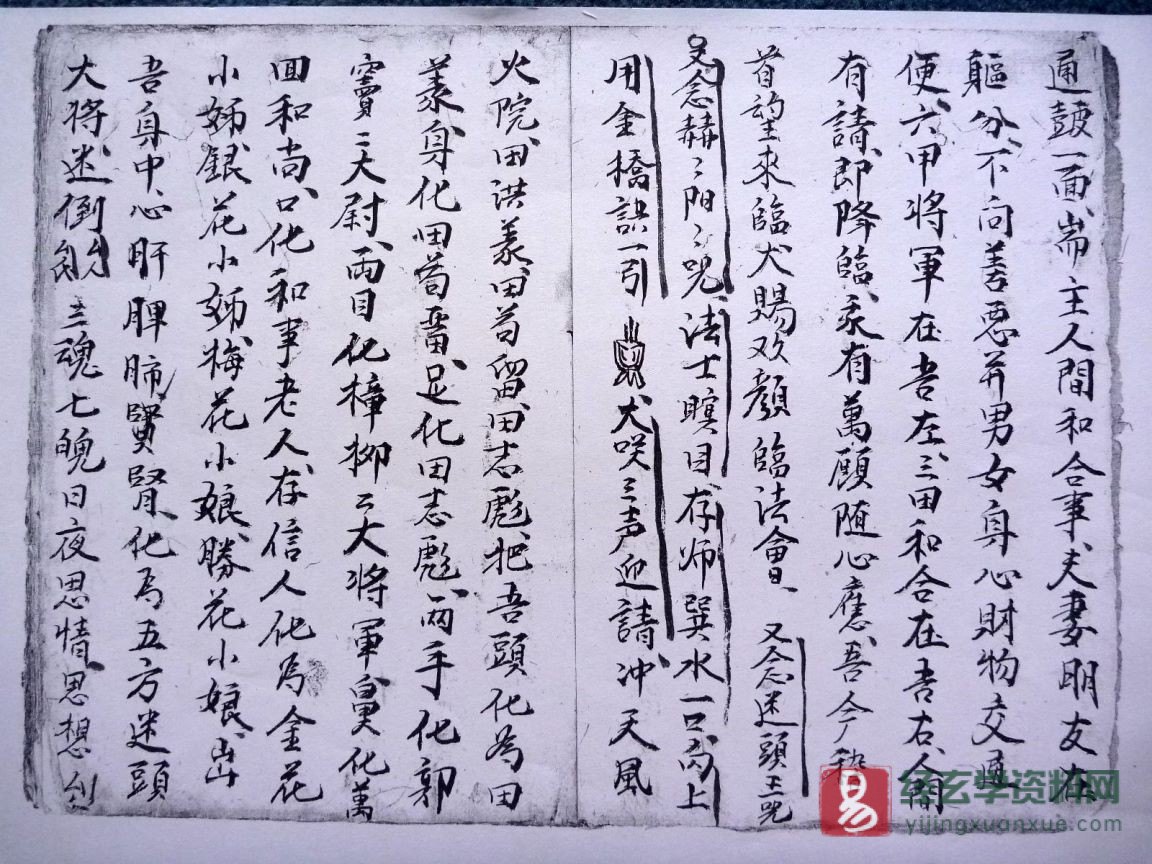 通鼓一面耑主人間和合事夫妻朋友在
軀分不向善惡并男女身心財物交通
便六甲將軍在吾左三田和合在吾右人間
有請即降臨求有萬願随心應吾今稽
首望來臨犬賜欢顔臨法會又念迷頭主咒
又念赫〻陽〻咒法士瞑目存师巽水一口向上
用金橋訣一引犬咲三声迎請沖天風
火院田洪義田苟留田志彪把吾頭化为田
義身化田苟畱足化田志彪两手化郭
竇二大尉两目化樟柳二大將軍鼻化萬
囬和尚口化和事老人存信人化爲金花
小姊銀花小姊梅花小娘勝花小娘出
吾身中心肝脾肺腎化为五方迷頭
大将迷倒三魂七魄日夜思情思想
易 经玄学资料网
yijingxuanxue.com